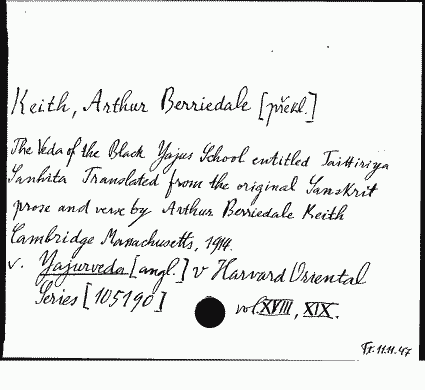 Keith, Arthur Berriedale [překl.]
The Veda of the Black Yajus School entitled Taittiriya
Sanhita Translated from the original Sanskrit
prose and verse by Arthur Berriedale Keith
Cambridge Massachusetts, 1914.
v. Yajurveda [angl.] v Harvard Oriental
Series [105190] vol. XVIII, XIX.
Fx.11.11.47